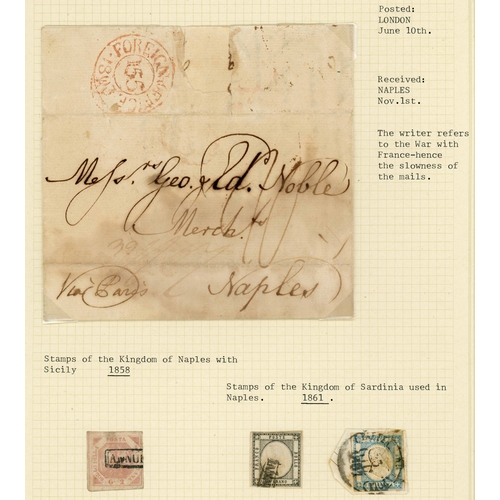 Posted:
LONDON
June 10th.
Received:
NAPLES
Nov.1st.
The writer refers
to the War with
France-hence
the slowness of
the mails.
FOREIGN
Messrs. Geo. & Noble
Merchts
Via Paris
Naples
Stamps of the Kingdom of Naples with
Sicily 1858
Stamps of the Kingdom of Sardinia used in
Naples. 1861.
ANNUL